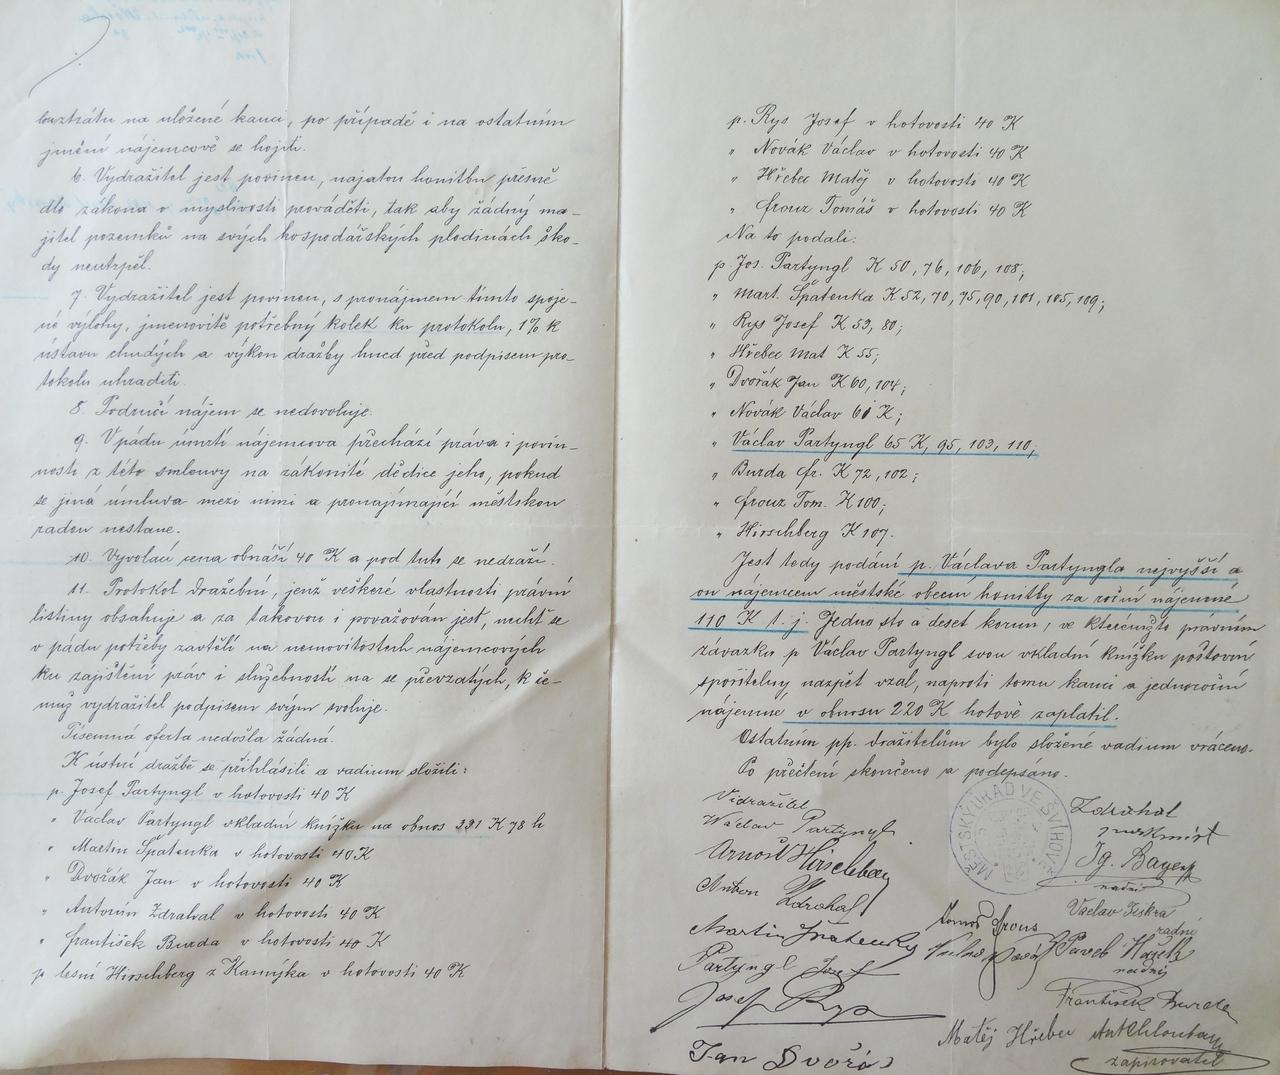 na uložené kauci, po případě i na ostatním
jmění nájemcově se hojiti.
6. Vydražitel jest povinen, najatou honitbu přesně
dle zákona o myslivosti prováděti, tak aby žádný ma-
jitel pozemků na svých hospodářských plodinách ško-
dy neutrpěl.
7. Vydražitel jest povinen, s pronájmem tímto spoje-
né výlohy, jmenovitě potřebný kolek ku protokolu, 1% k
ústavu chudých a výkon dražby hned před podpisem pro-
tokolu uhraditi.
8. Područí nájem se nedovoluje.
9. V pádu úmrtí nájemcova přechází práva i povin-
nosti z této smlouvy na zákonité dědice jeho, pokud
se jiná úmluva mezi nimi a pronajímající městskou
radou nestane.
10. Vyvolací cena obnáší 40 K a pod tuto se nedraží.
11. Protokol dražební, jenž veškeré vlastnosti právní
listiny obsahuje a za takovou i považován jest, nechť se
v pádu potřeby zavtělí na nemovitostech nájemcových
ku zajištění práv i služebností na se převzatých, k če-
muž vydražitel podpisem svým svoluje.
Písemná oferta nedošla žádná.
K ústní dražbě se přihlásili a vadium složili:
p. Josef Partyngl v hotovosti 40 K
" Václav Partyngl vkladní knížku na obnos 221 K 78 h
" Martin Špatenka v hotovosti 40 K
" Dvořák Jan v hotovosti 40 K
" Antonín Zdrahal v hotovosti 40 K
" František Burda v hotovosti 40 K
p lesní Hirschberg z Kamýka v hotovosti 40 K
p. Rys Josef v hotovosti 40 K
" Novák Václav v hotovosti 40 K
" Hřebec Matěj v hotovosti 40 K
" frouz Tomáš v hotovosti 40 K
Na to podali:
p. Jos. Partyngl K 50, 76, 106, 108;
" Mart. Špatenka K 52, 70, 75, 90, 101, 105, 109;
" Rys Josef K 53, 80;
" Hřebec Mat K 55;
" Dvořák Jan K 60, 104;
" Novák Václav 61 K;
" Václav Partyngl 65 K, 95, 103, 110;
" Burda fr. K 72, 102;
" frouz Tom. K 100;
" Hirschberg K 107.
Jest tedy podání p. Václava Partyngla nejvyšší a
on nájemcem městské obecní honitby za roční nájemné
110 K t. j. Jedno sto a deset korun, ve kterémžto právním
závazku p Václav Partyngl svou vkladní knížku poštovní
spořitelny nazpět vzal, naproti tomu kauci a jednoroční
nájemné v obnosu 220 K hotově zaplatil.
Ostatním pp. dražitelům bylo složené vadium vráceno.
Po přečtení skončeno a podepsáno.
MĚSTSKÝ ÚŘAD VE ŠVIHOVĚ
Vidražitel
Václav Partyngl
Arnošt Hirschberg
Anton Zdrahal
Martin Špatenka
Partyngl Josef
Josef Rys
Jan Dvořák
Zdrahal
Ig. Bayer
radní
Václav Jiskra
radní
Tomáš Frous
Václav Novák
Pavel Hájek
radní
František Burda
Matěj Hřebec
zapisovatel